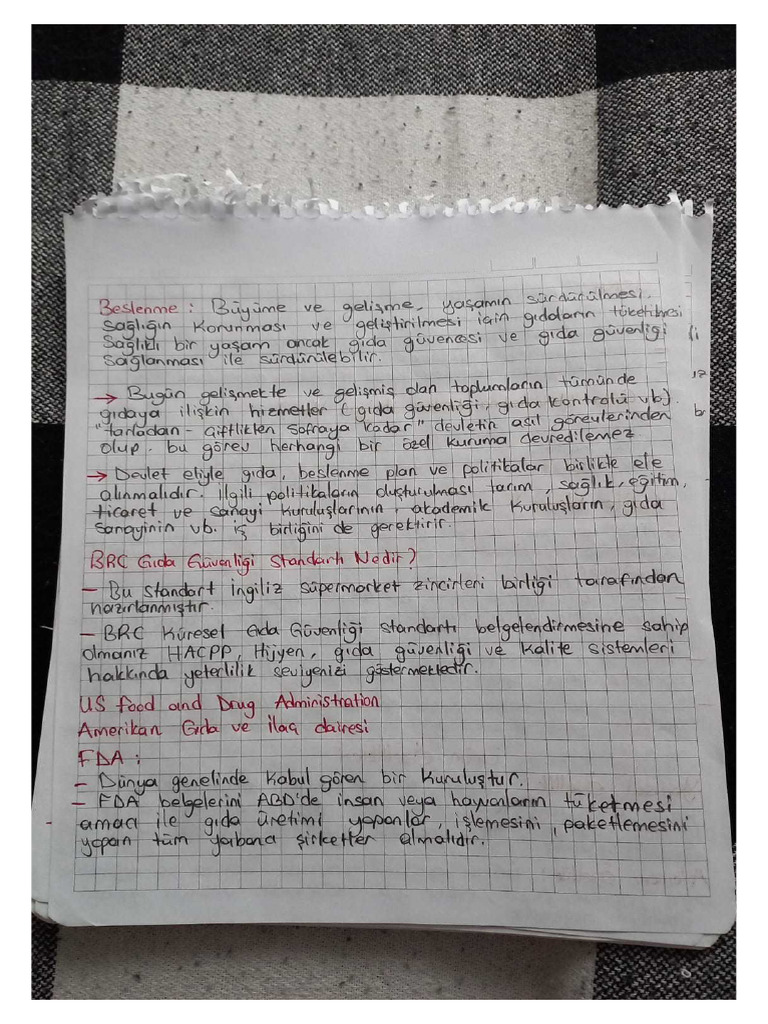 Beslenme : Büyüme ve gelişme, yaşamın sürdürülmesi,
Sağlığın korunması ve geliştirilmesi için gıdaların tüketilmesi
Sağlıklı bir yaşam ancak gıda güvencesi ve gıda güvenliği
Sağlanması ile sürdürülebilir.
→ Bugün gelişmekte ve gelişmiş olan toplumların tümünde
gıdaya ilişkin hizmetler (gıda güvenliği, gıda kontrolü vb).
"tarladan - çiftlikten sofraya kadar" devletin asıl görevlerinden
olup. bu görev herhangi bir özel kuruma devredilemez
→ Devlet eliyle gıda, beslenme plan ve politikalar birlikte ele
alınmalıdır. ilgili politikaların oluşturulması tarım, sağlık, eğitim,
ticaret ve sanayi kuruluşlarının, akademik kuruluşların, gıda
Sanayinin vb. iş birliğini de gerektirir.
BRC Gıda Güvenliği Standartı Nedir?
- Bu standart ingiliz süpermarket zincirleri birliği tarafından
hazırlanmıştır.
- BRC Küresel Gıda Güvenliği standartı belgelendirmesine sahip
olmanız HACPP, Hijyen, gıda güvenliği ve Kalite sistemleri
hakkında yeterlilik seviyenizi göstermektedir.
US food and Drug Administration
Amerikan Gıda ve ilaç dairesi
FDA :
- Dünya genelinde kabul gören bir kuruluştur.
- FDA belgelerini ABD'de insan veya hayvanların tüketmesi
amacı ile gıda üretimi yapanlar, işlemesini, paketlemesini
yapan tüm yabancı şirketler almalıdır.